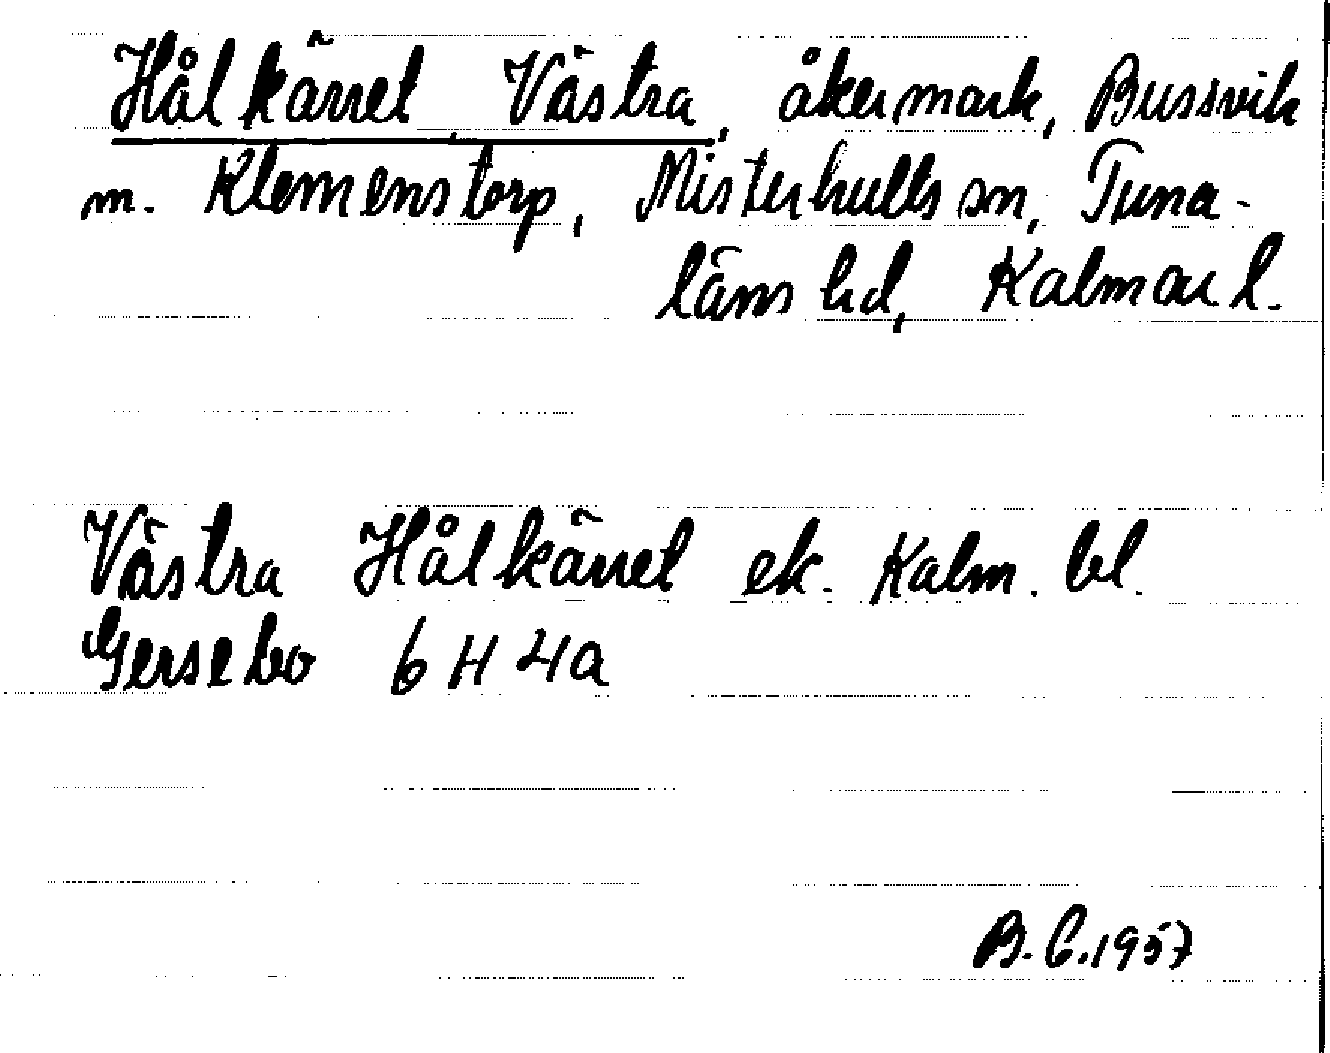 Hålkärret, Västra, åkermark, Bussvik
m. Klemenstorp, Misterhults sn, Tuna-
läns hd, Kalmar l.
Västra Hålkärret ek. Kalm. bl.
Gersebo 6 H 4a
B. C. 1957